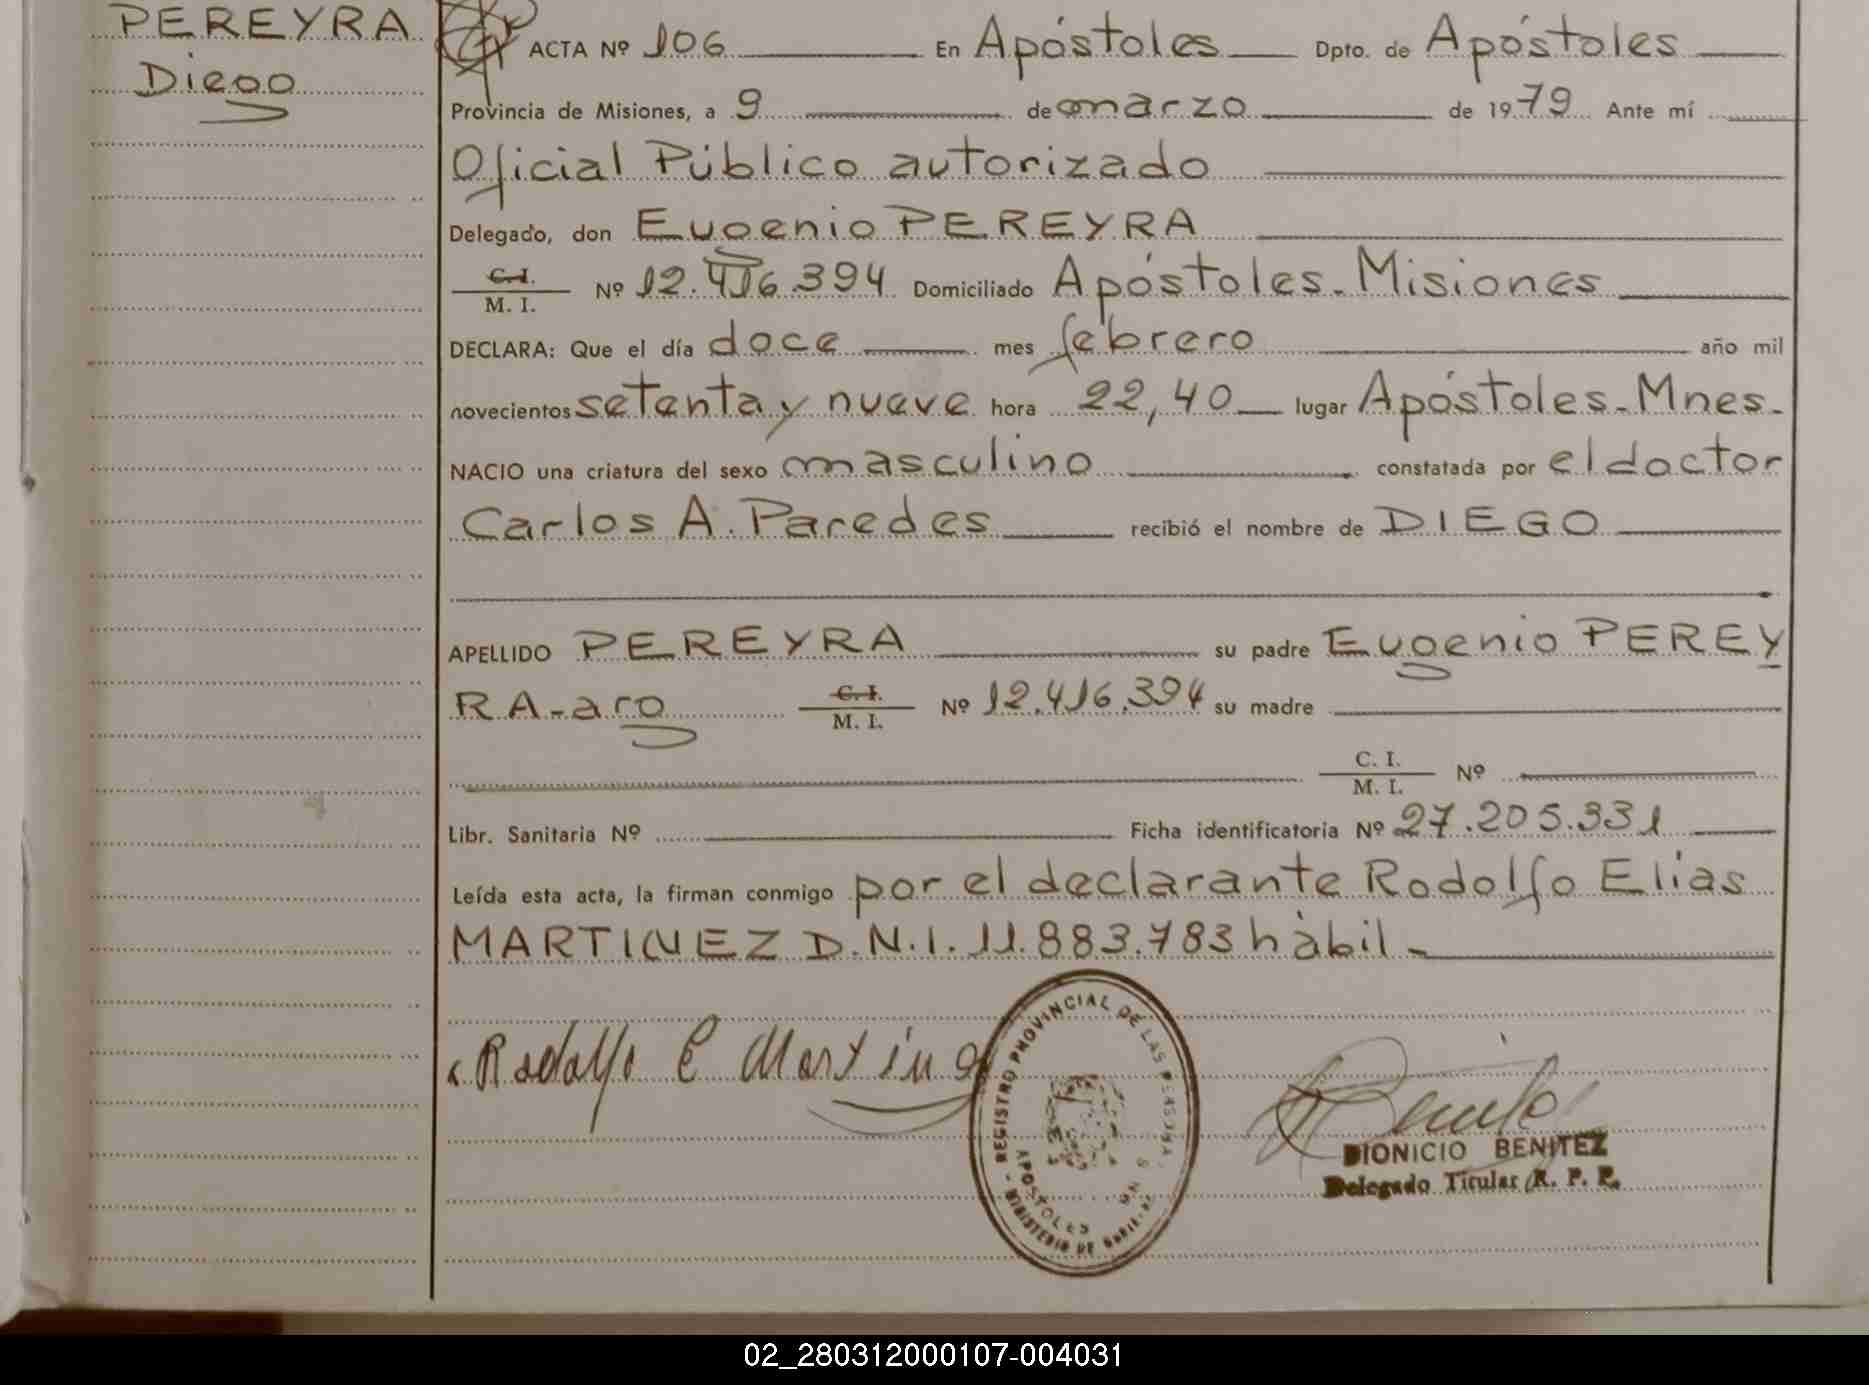 PEREYRA
Diego
ACTA Nº 106 En Apóstoles Dpto. de Apóstoles
Provincia de Misiones, a 9 de marzo de 1979 Ante mí
Oficial Público autorizado
Delegado, don Eugenio PEREYRA
C.I. M. I. Nº 12.416.394 Domiciliado Apóstoles-Misiones
DECLARA: Que el día doce mes febrero año mil
novecientos setenta y nueve hora 22,40 lugar Apóstoles-Mnes.
NACIO una criatura del sexo masculino constatada por el doctor
Carlos A. Paredes recibió el nombre de DIEGO
APELLIDO PEREYRA su padre Eugenio PEREY
RA-arg C.I. M. I. Nº 12.416.394 su madre
C. I. M. I. Nº
Libr. Sanitaria Nº Ficha identificatoria Nº 27.205.331
Leída esta acta, la firman conmigo por el declarante Rodolfo Elías
MARTINEZ D.N.I. 11.883.783 hàbil-
Rodolfo E Martine
REGISTRO PROVINCIAL DE LAS PERSONAS
APOSTOLES
MINISTERIO DE
DIONICIO BENITEZ
Delegado Titular R. P. P.
02_280312000107-004031